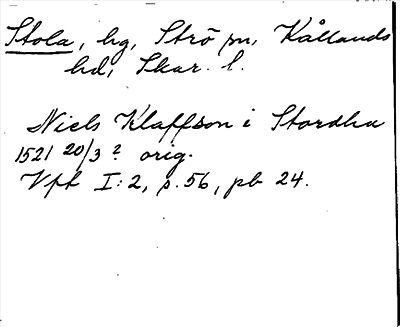 Stola, hg, Strö sn, Kållands
hd, Skar. l.
Niels Klaffson i Stordha
1521 20/3 ? orig.
Vpk I:2, s. 56, pb 24.